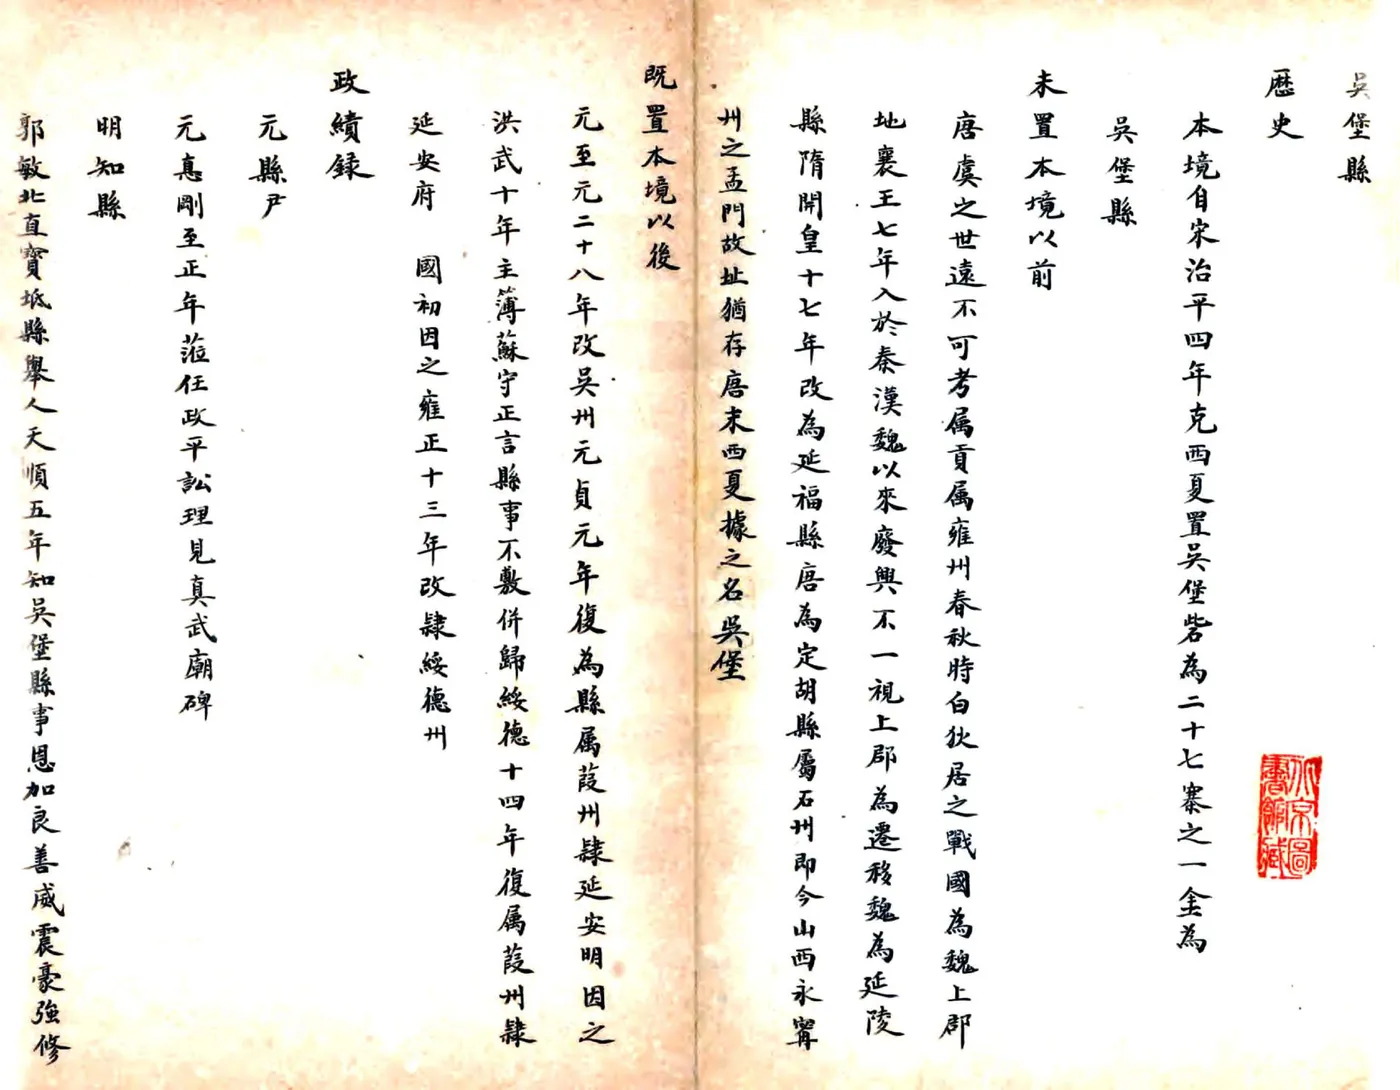 吳堡縣
歷史
本境自宋治平四年克西夏置吳堡砦為二十七寨之一金為
吳堡縣
未置本境以前
唐虞之世遠不可考属貢属雍州春秋時白狄居之戰國為魏上郡
地襄王七年入於秦漢魏以來廢興不一視上郡為遷移魏為延陵
縣隋開皇十七年改為延福縣唐為定胡縣屬石州即今山西永寗
州之孟門故址猶存唐末西夏據之名吳堡
既置本境以後
元至元二十八年改吳州元貞元年復為縣属葭州隸延安明因之
洪武十年主簿蘇守正言縣事不敷併歸綏德十四年復属葭州隸
延安府 國初因之雍正十三年改隸綏德州
政績錄
元縣尹
元惪剛至正年蒞任政平訟理見真武廟碑
明知縣
郭敏北直寶坻縣舉人天順五年知吳堡縣事恩加良善威震豪強修
北京圖書館藏